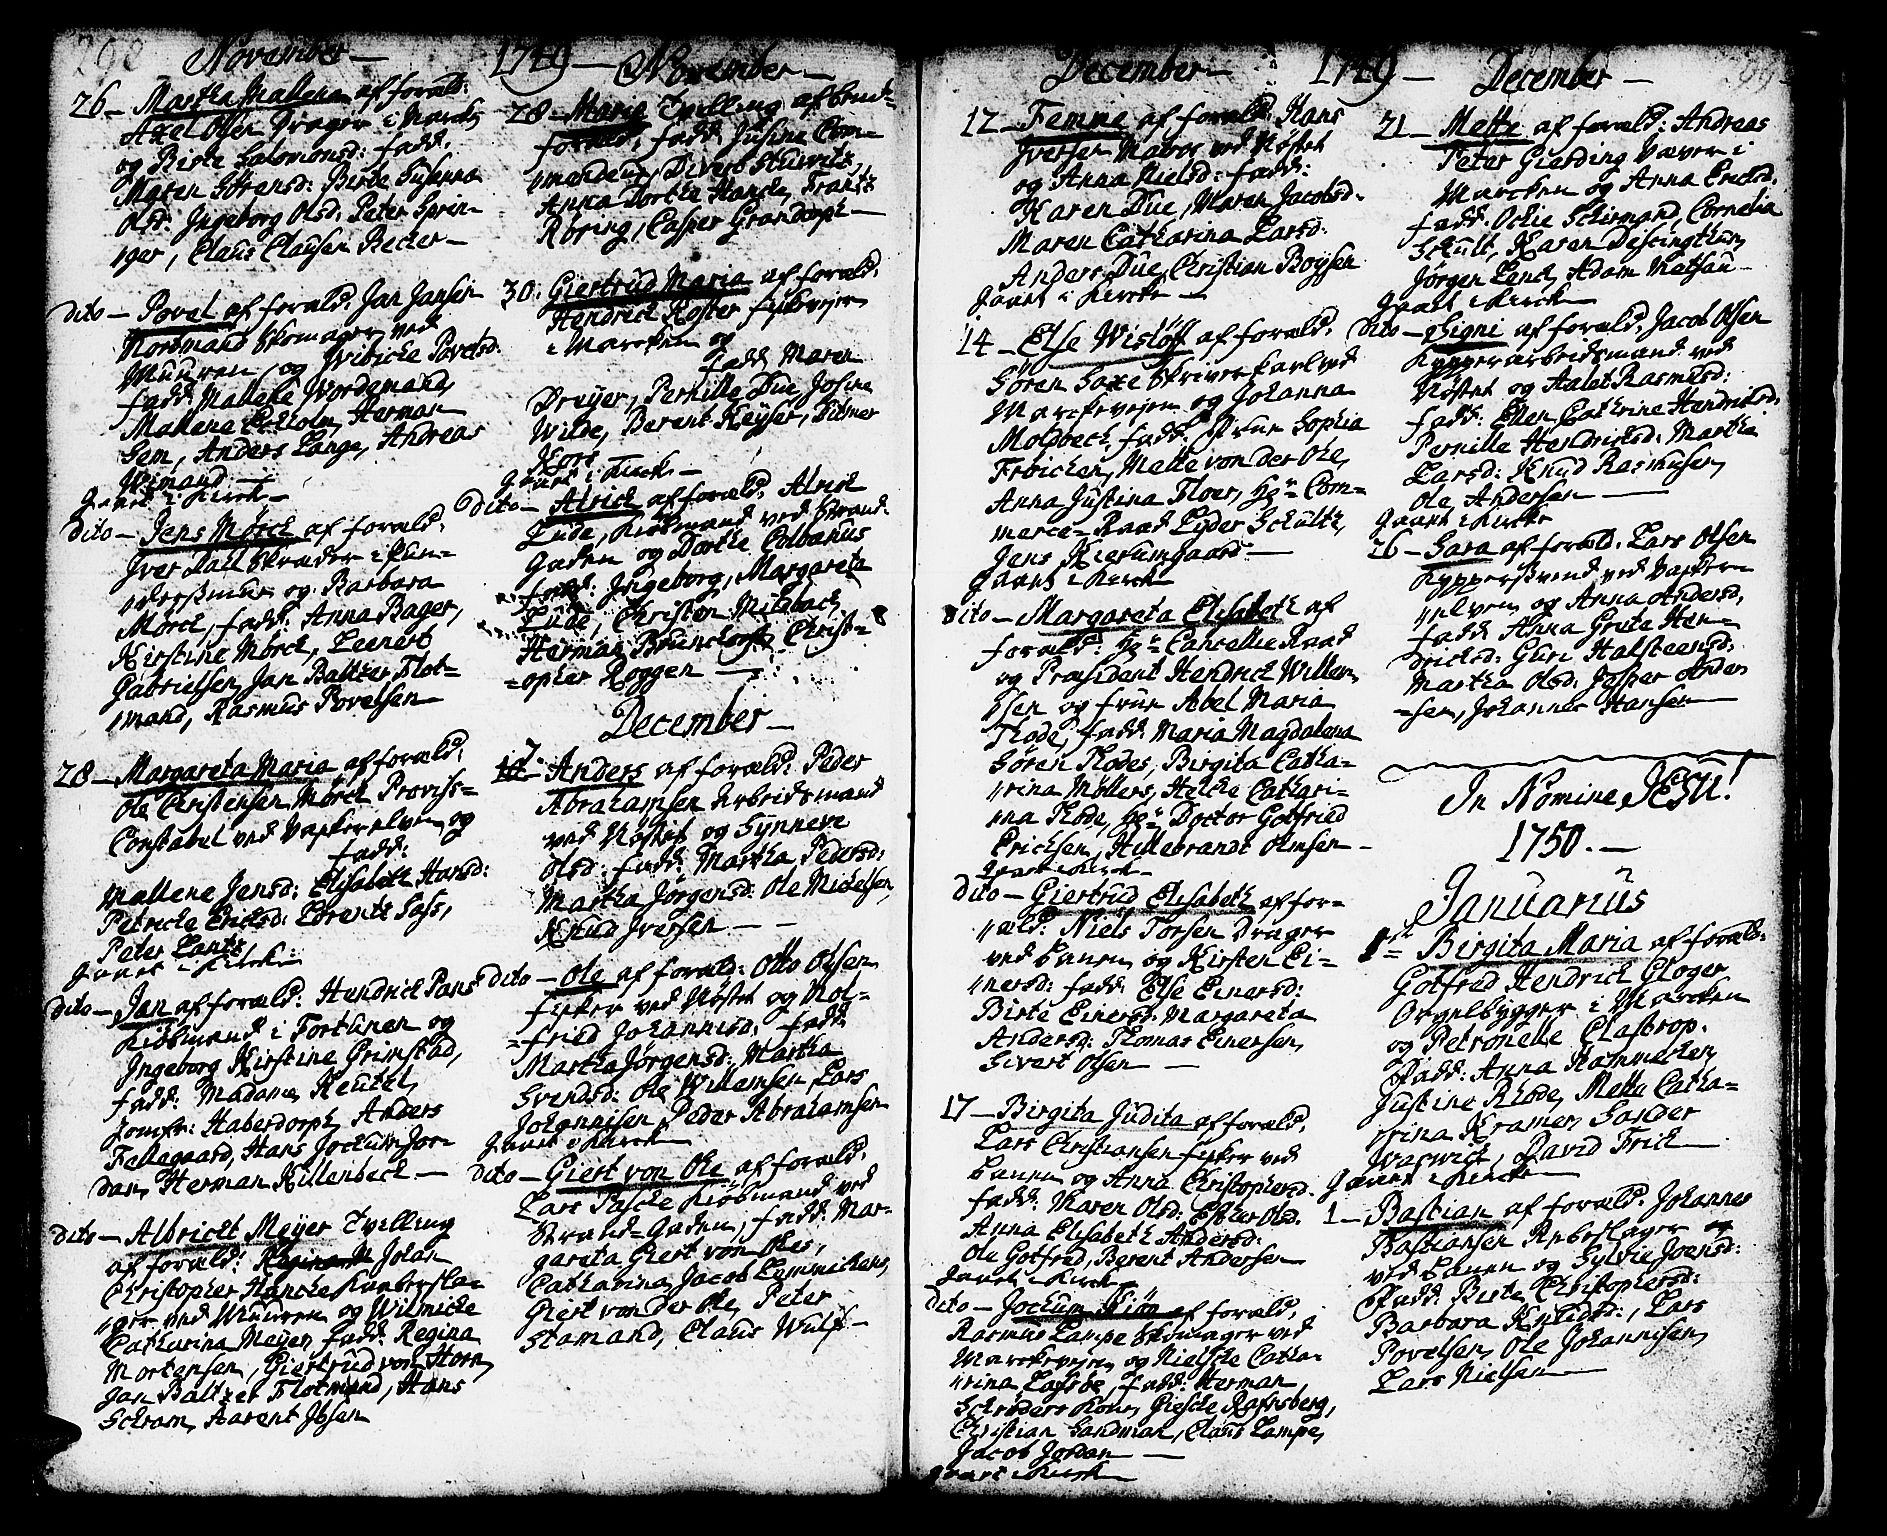 298 November — 1749 — November —
26 — Martha Mallena af foræld:
Axel Olsen Drager i Marcken
og Birte Salomonsd: fadd.
Maren Sörensd: Birte Susanna
Olsd: Ingeborg Olsd: Peter Sprin-
ger, Claus Clausen Recker —
dito — Povel af foræld. Jan Jansen
Nordmand Skomager ved
Muuren, og Wibicke Povelsd:
fadd. Mallene Nordemand,
Mallene Ekholm, Herman
Gem, Anders Lange, Andreas
Wimand —
gaaet i Kirck —
dito — Jens Mörck af foræld.
Iver Dall Skræder i
og Barbara
Mörck, fadd: Anna Bager,
Kirstine Mörck, Leenert
Gabrielsen, Jan Baltzer Flot-
mand, Rasmus Povelsen
28 — Margareta Maria af foræld,
Ole Christensen Mörck Proviss-
Constabel ved Vaskerelven og
fadd:
Mallene Jensd: Elisabeth Hansd:
Petricke Ericksd: Lorentz Sass,
Peter Lantz
gaaet i Kirck —
dito — Jan af foræld: Hendrick Pans
Kiöbmand i Fortunen og
Ingeborg Kirstine Grimstad,
fadd: Madame Reutz,
Jomfr: Haberdorph, Anders
Fellegaard, Hans Jochum Jor-
dan, Herman Killenbeck —
dito — Albricht Meyer Tvilling
af foræld: Johan
Christopher Hancke Kaaberslа-
ger ved Muuren og Wilmicke
Catharina Meyer, fadd. Regina
Mortensen, Giertrud von Horn,
Jan Baltzer Flotmand, Hans
Schram, Aarent Ibsen
28 — Maria Tvilling af bemt
foræld, fadd: Justine Com-
mandeur, Divert Stuwitz,
Anna Dorthe Hancke, Frantz
Röring, Casper Grandorph —
30. Giertrud Maria af foræld,
Hendrick Koster
i Marcken og
fadd Maren
Dreyer, Pernille Due, Josine
Wilde, Berent Keyser, Ditmer
Kors —
gaaet i Kirck —
dito — Alrick af foræld, Alrick
Lude, Kiöbmand ved Strand-
Gaden og Dorthe Colbanus
fadd: Ingeborg, Margareta
Lude, Christen Milsbach,
Herman Brunchorst, Christ-
opher Roggen —
December —
7. Anders af foræld: Peder
Abrahamsen Arbeidsmand
ved Nöstet og Synneve
Olsd: fadd: Martha Pedersd:
Martha Jörgensd: Ole Mickelsen,
Knud Iversen —
dito — Ole af foræld: Otto Olsen
fisker ved Nöstet og Mal-
fried Johannisd. fadd:
Martha Jörgensd: Martha
Svendsd: Ole Willamsen, Lars
Johannisen, Peder Abrahamsen
gaaet i Kirck
dito — Giert von Ole af foræld,
Lars Pascke Kiöbmand ved
Strand-Gaden, fadd: Mar-
gareta Giert von Oles,
Catharina Jacob Lemmickens,
Giert von der Ole, Peter
Stamand, Claus Wulf —
December — 1749 — December — 299
12 — Femme af foræld: Hans
Iversen Matros ved Nöstet
og Anna Nielsd: fadd:
Karen Due, Maren Jacobsd.
Maren Catharina Larsd:
Anders Due, Christian Boysen
gaaet i Kircke —
14 — Else Wislöff af foræld,
Sören Saxe Skriverkarl ved
Marckeveyen og Johanna
Molzbech, fadd: Frue Sophia
Fröichen, Mette von der Ole,
Anna Justina Floer, Hr Com-
merce-Raad Lyder Schultz,
Jens Kierumgaard —
gaaet i Kirck
dito — Margareta Elisabeth af
foræld: Hr Cancellie Raad
og Præsident Hendrick Willem-
sen og frue Abel Maria
Thode, fadd: Maria Magdalena
Sören Thodes, Birgita Catha-
rina Möllers, Hilche Cathari-
na Thode, Hr Doctor Gotfried
Ericksen, Hillebrandt Olmsen —
gaaet i Kirck —
dito — Giertrud Elisabeth af for-
æld: Niels Torsen Drager
ved Tanen og Kirsten Ei-
nersd: fadd: Else Einersd:
Birte Einersd: Margareta
Andersd: Thomas Einersen,
Sivert Olsen —
17 — Birgita Judita af foræld,
Lars Christiansen fisker ved
Tanen og Anna Christophersd.
fadd: Maren Olsd: Esther Olsd.
Anna Elisabeth Andersd:
Ole Gotfred, Berent Andersen
gaaet i Kirck —
dito — Jochum Kiön af foræld,
Rasmus Lampe Skomager ved
Marckeveyen og Nielsche Catha-
rina Lassöe, fadd: Herman
Schröders Kone, Giesche Rafnsberg,
Christian Sandman, Claus Lampe,
Jacob Jordan —
gaaet i Kirck —
21 — Mette af foræld: Andreas
Peter Giarding Væver i
Marcken og Anna Ericksd:
fadd: Ockie Schirmand, Cornelia
Schult, Karen Discingthun,
Jörgen Lenck, Adam Matsau —
gaaet i Kirck —
dito — Signi af foræld, Jacob Olsen
Kypperarbeidsmand ved
Nöstet og Aalet Rasmusd:
fadd: Ellen Cathrine Hendriksd:
Pernille Hendricksd: Martha
Larsd: Knud Rasmusen,
Ole Andersen —
gaaet i Kircke
26 — Sara af foræld: Lars Olsen
Kyppersvend ved Vasker-
elven og Anna Andersd,
fadd: Anna Grete Hen-
dricksd: Guri Halsteensd:
Martha Olsd: Jesper Ander-
sen, Johannes Hansen —
In Nomine JESU!
1750. —
Januarius
1st Birgita Maria af foræld:
Gotfred Hendrick Gloger
Orgelbygger i Marcken
og Petronelle Clastrop.
fadd: Anna Hammecken,
Justine Rhode, Mette Catha-
rina Kramer, Sander
Warwick, David Frick
gaaet i Kircke —
1 — Bastian af foræld: Johannes
Bastiansen Rebeslager
ved Tanen og Sylvie Joensd:
fadd: Birte Christophersd:
Barbara Knudsd:, Lars
Povelsen, Ole Johannisen,
Lars Nielsen —